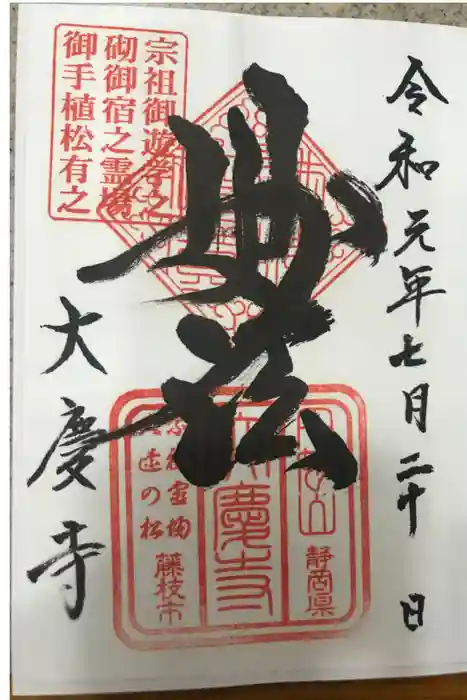 令和元年七月二十日
妙法
大慶寺
宗祖御遊学之
砌御宿之霊場
御手植松有之
静岡県
大慶寺
久遠の松
藤枝市